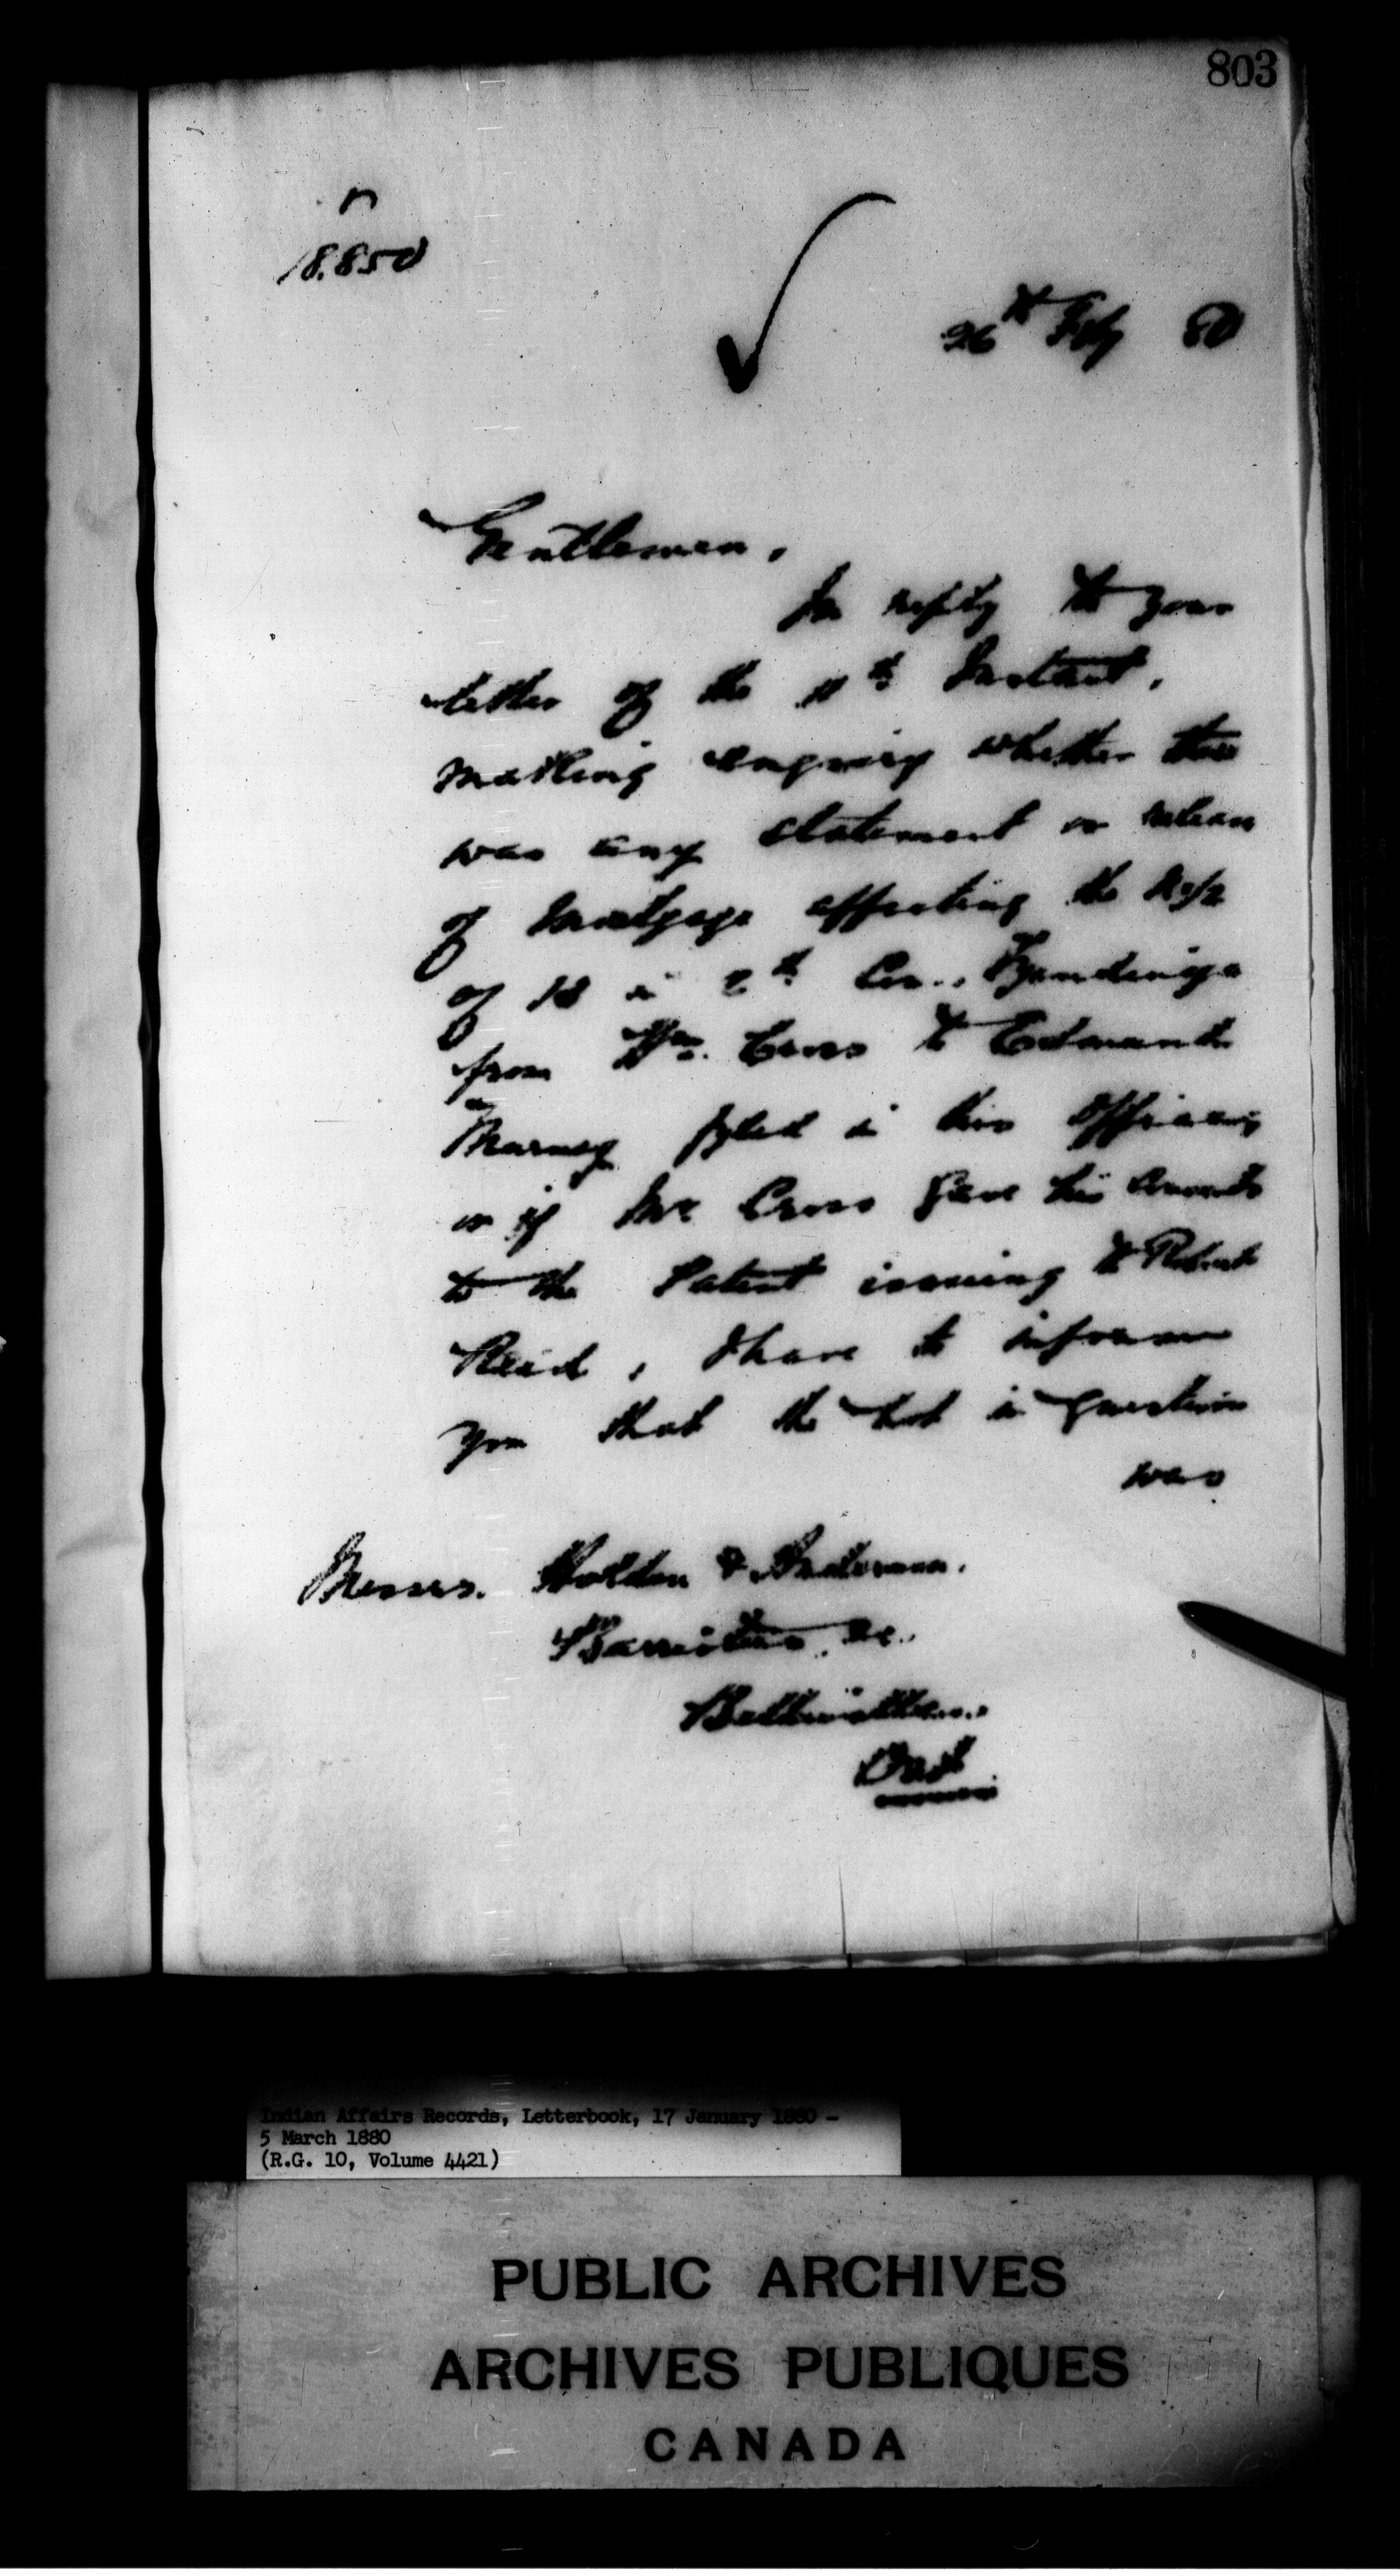 803
18.850
26th Feby 80
Gentlemen,
In reply to your
letter of the 11th Instant,
making enquiry whether there
was any statement or release
of Mortgage affecting the
of 18 in 2nd Con., Tyendinaga
from Wm. Cross to Edmund
Murney fyled in this Office
or if Mr Cross gave his consent
to the Patent issuing to Robert
Reid, I have to inform
you that the Lot in question
was
Messrs. Holden &
Barristers &c.
Belleville
Ont
Indian Affairs Records, Letterbook, 17 January 1880 -
5 March 1880
(R.G. 10, Volume 4421)
PUBLIC ARCHIVES
ARCHIVES PUBLIQUES
CANADA